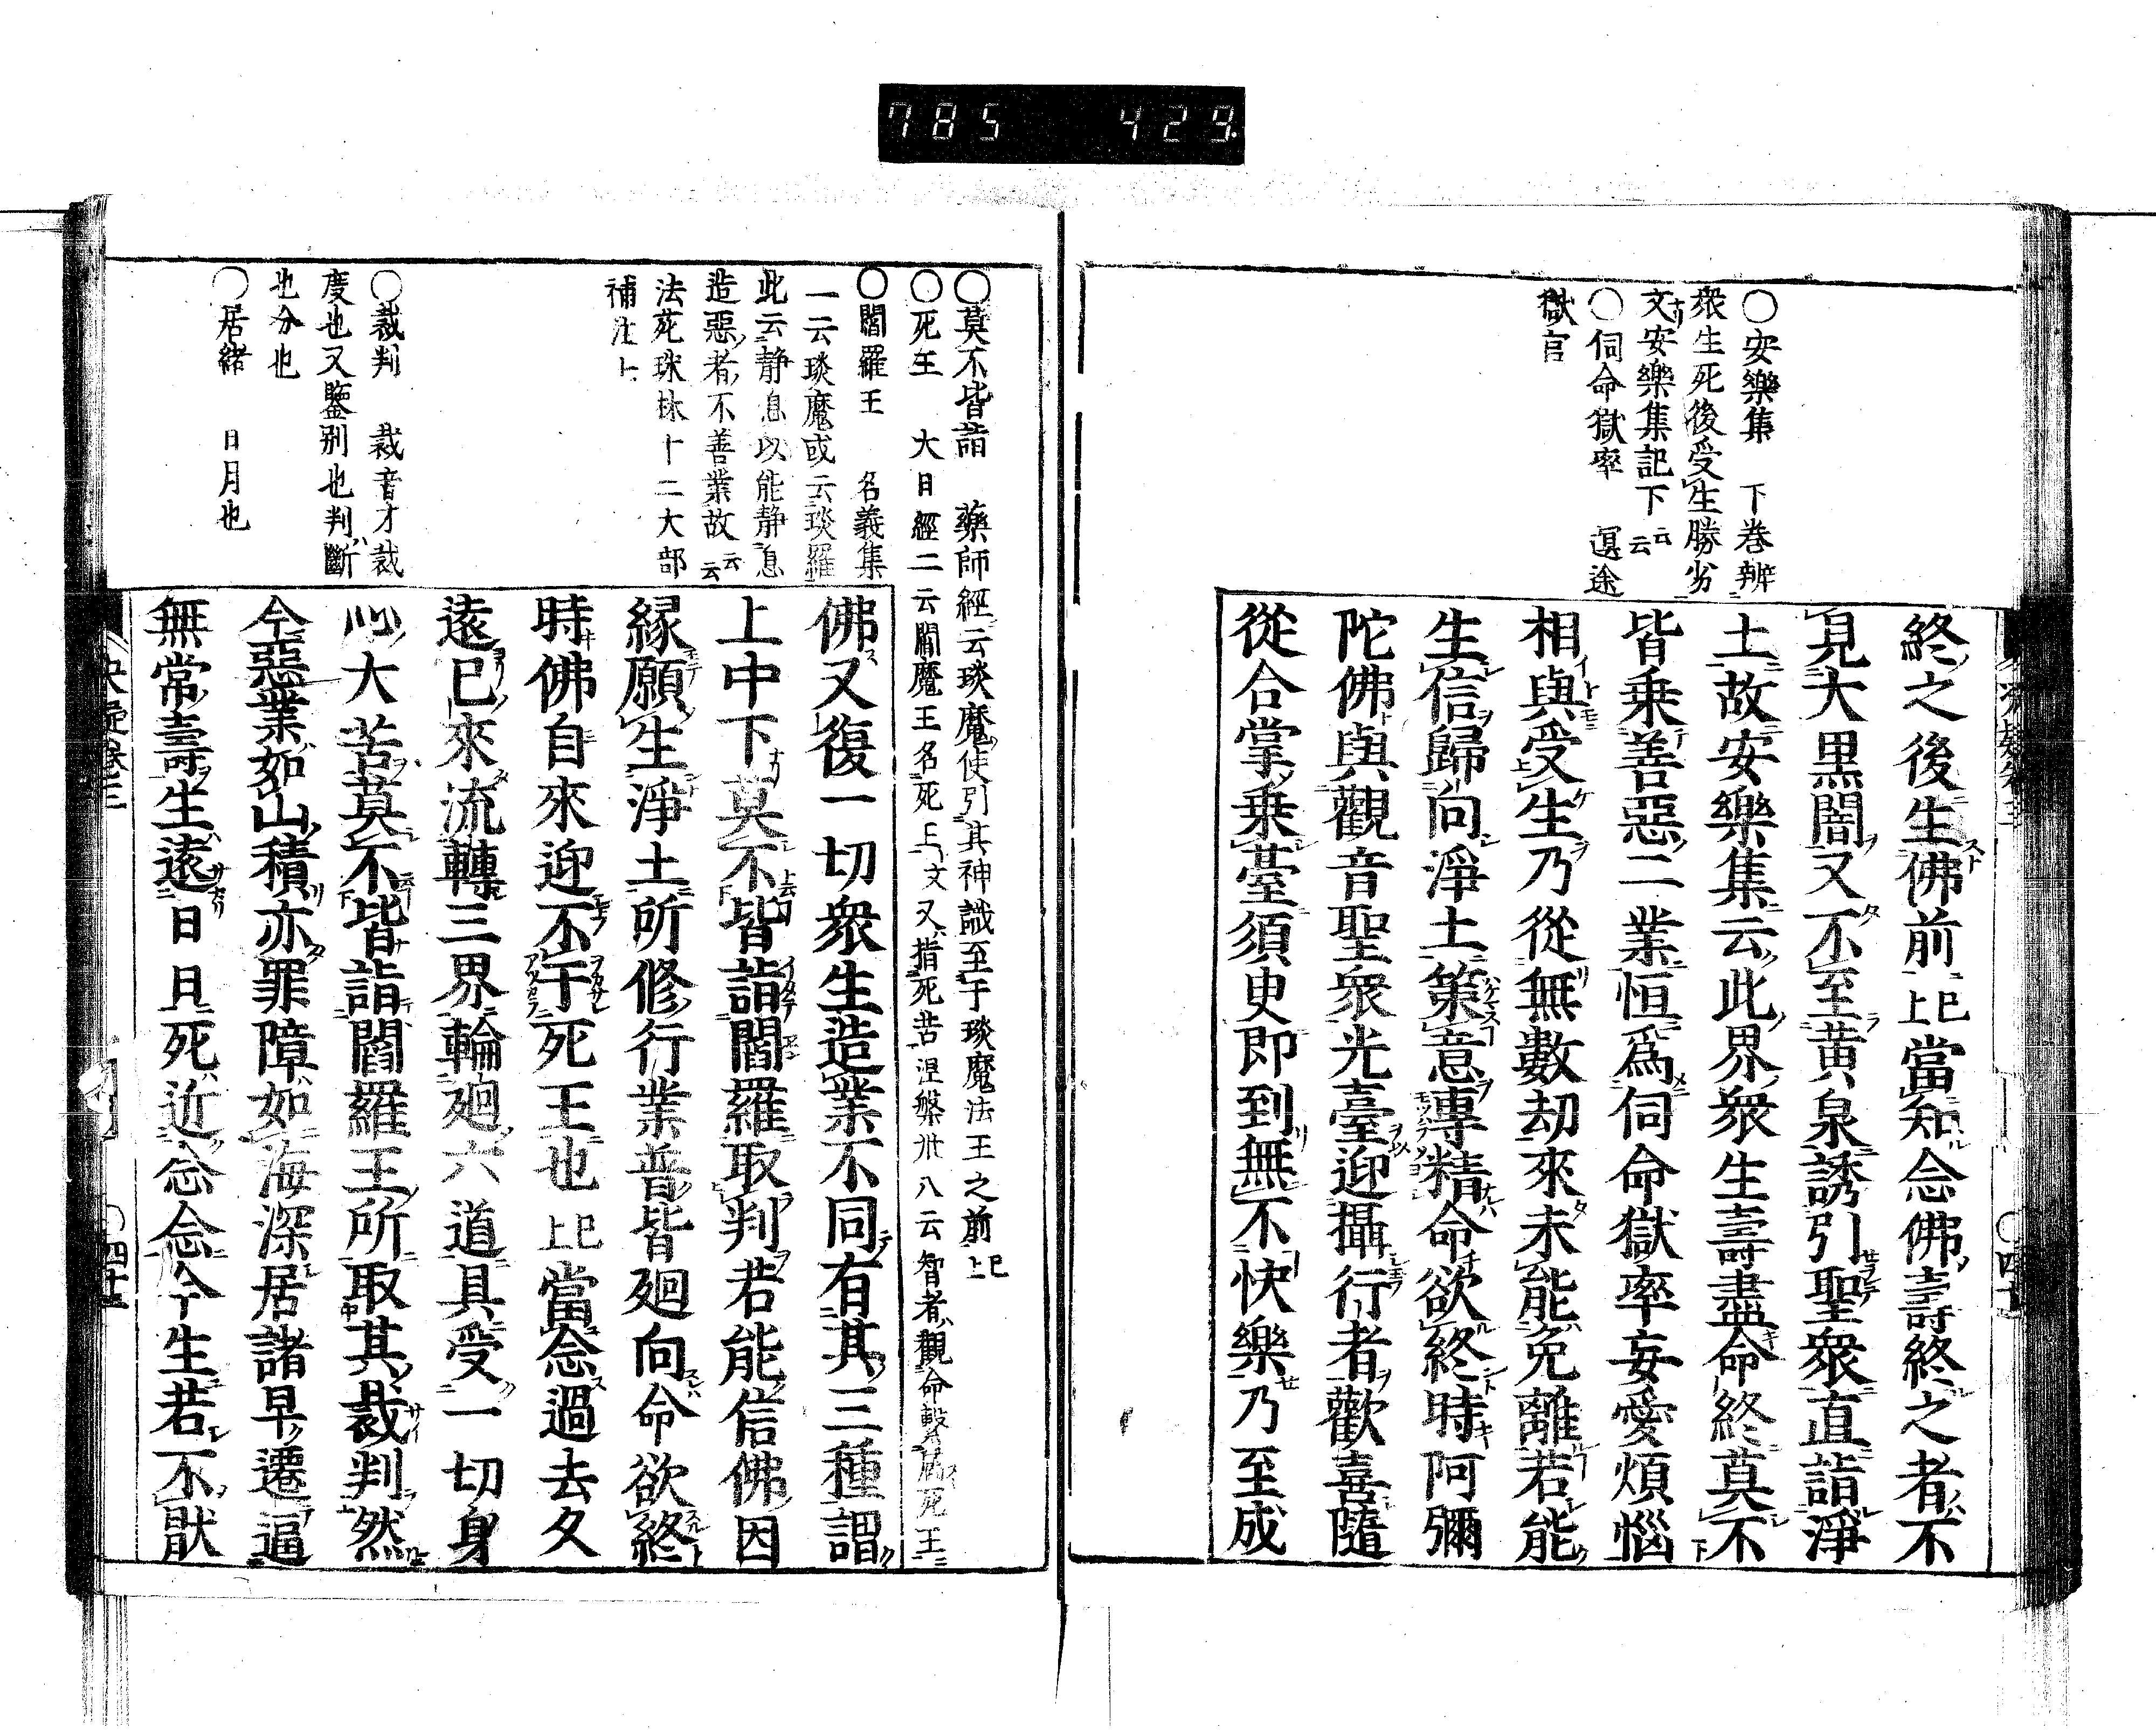 785 429.
○安樂集 下巻辨
衆生死後受生勝劣
文安樂集記下云云
○伺命獄率 冥途
獄官
終之後生佛前已上當知念佛壽終之者不
見大黒闇又不至黄泉誘引聖衆直詣淨
土故安樂集云此界衆生壽盡命終莫不
皆乗善惡二業恒爲伺命獄率妄愛煩惱
相與受生乃從無數劫來未能免離若能
生信歸向淨土策意專精命欲終時阿彌
陀佛與觀音聖衆光臺迎攝行者歡喜隨
從合掌乗臺須臾即到無不快樂乃至成
○莫不皆詣 藥師經云琰魔使引其神識至于琰魔法王之前已上
○死王 大日經二云閻魔王名死王文又指死苦涅槃卅八云智者觀命繫屬死王
○閻羅王 名義集
一云琰魔或云琰羅
此云静息以能静息
造惡者不善業故云云
法苑珠林十二大部
補注上
○裁判 裁音才裁
度也又鑒别也判斷
也分也
○居緒 日月也
佛又復一切衆生造業不同有其三種謂
上中下莫不皆詣閻羅取判若能信佛因
縁願生淨土所修行業普皆廻向命欲終
時佛自來迎不于死王也已上當念過去久
遠已來流轉三界輪廻六道具受一切身
心大苦莫不皆詣閻羅王所取其裁判然
今惡業如山積亦罪障如海深居諸早遷逼
無常壽生遠日日死近念念今生若不猒
決疑巻三
○四十